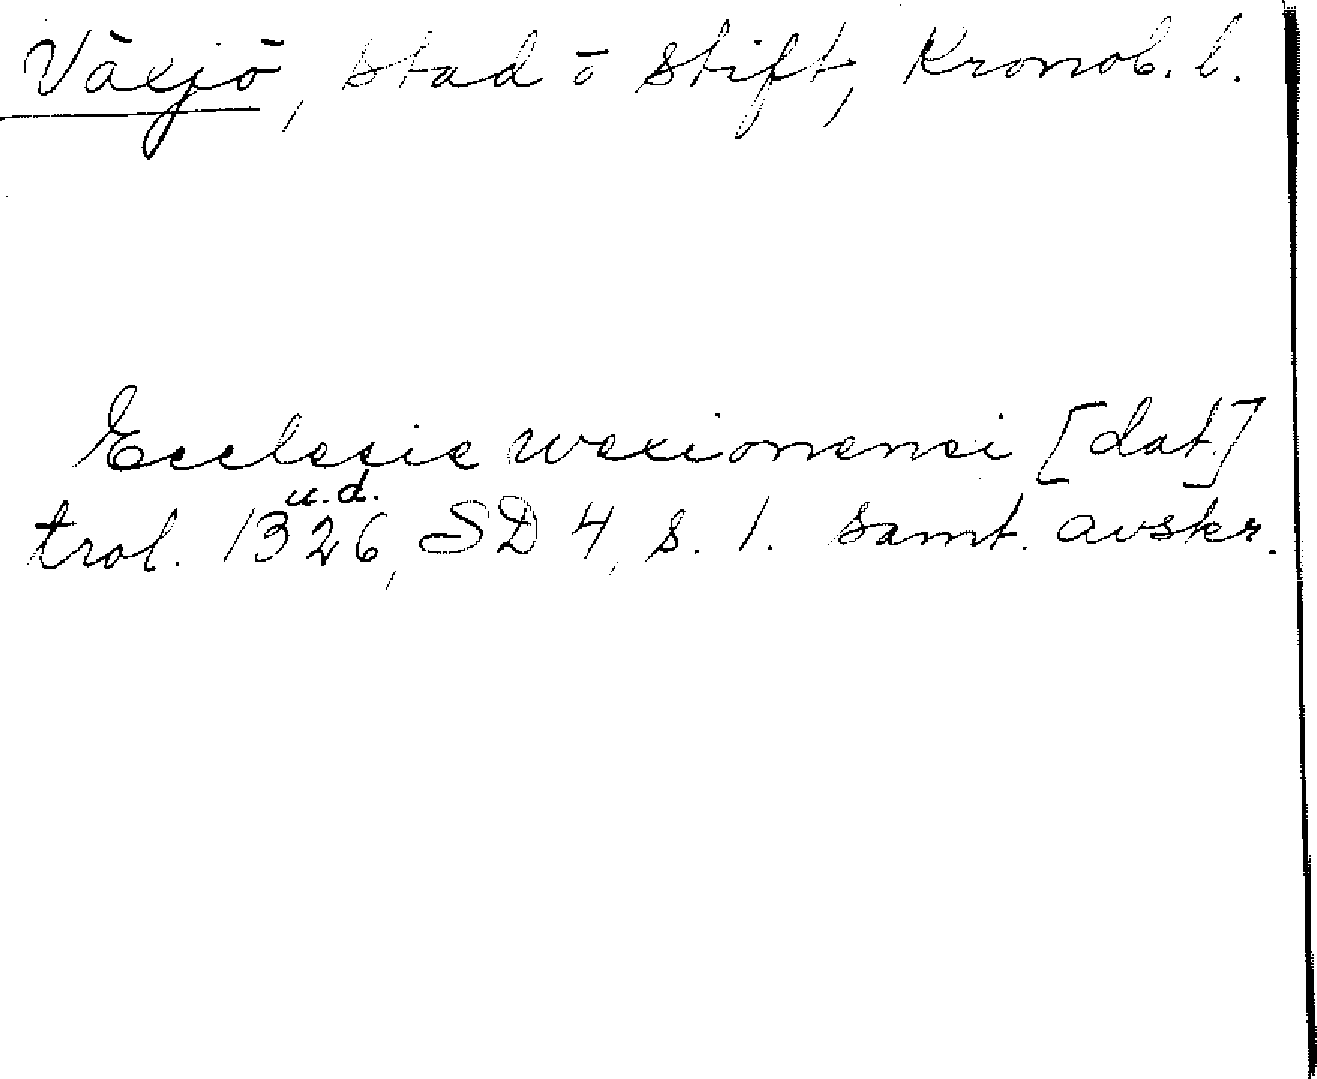 Växjö, stad ö stift, Kronob. l.
Ecclesie wexionensi [dat.]
u.d.
trol. 1326, SD 4, s. 1. samt. avskr.